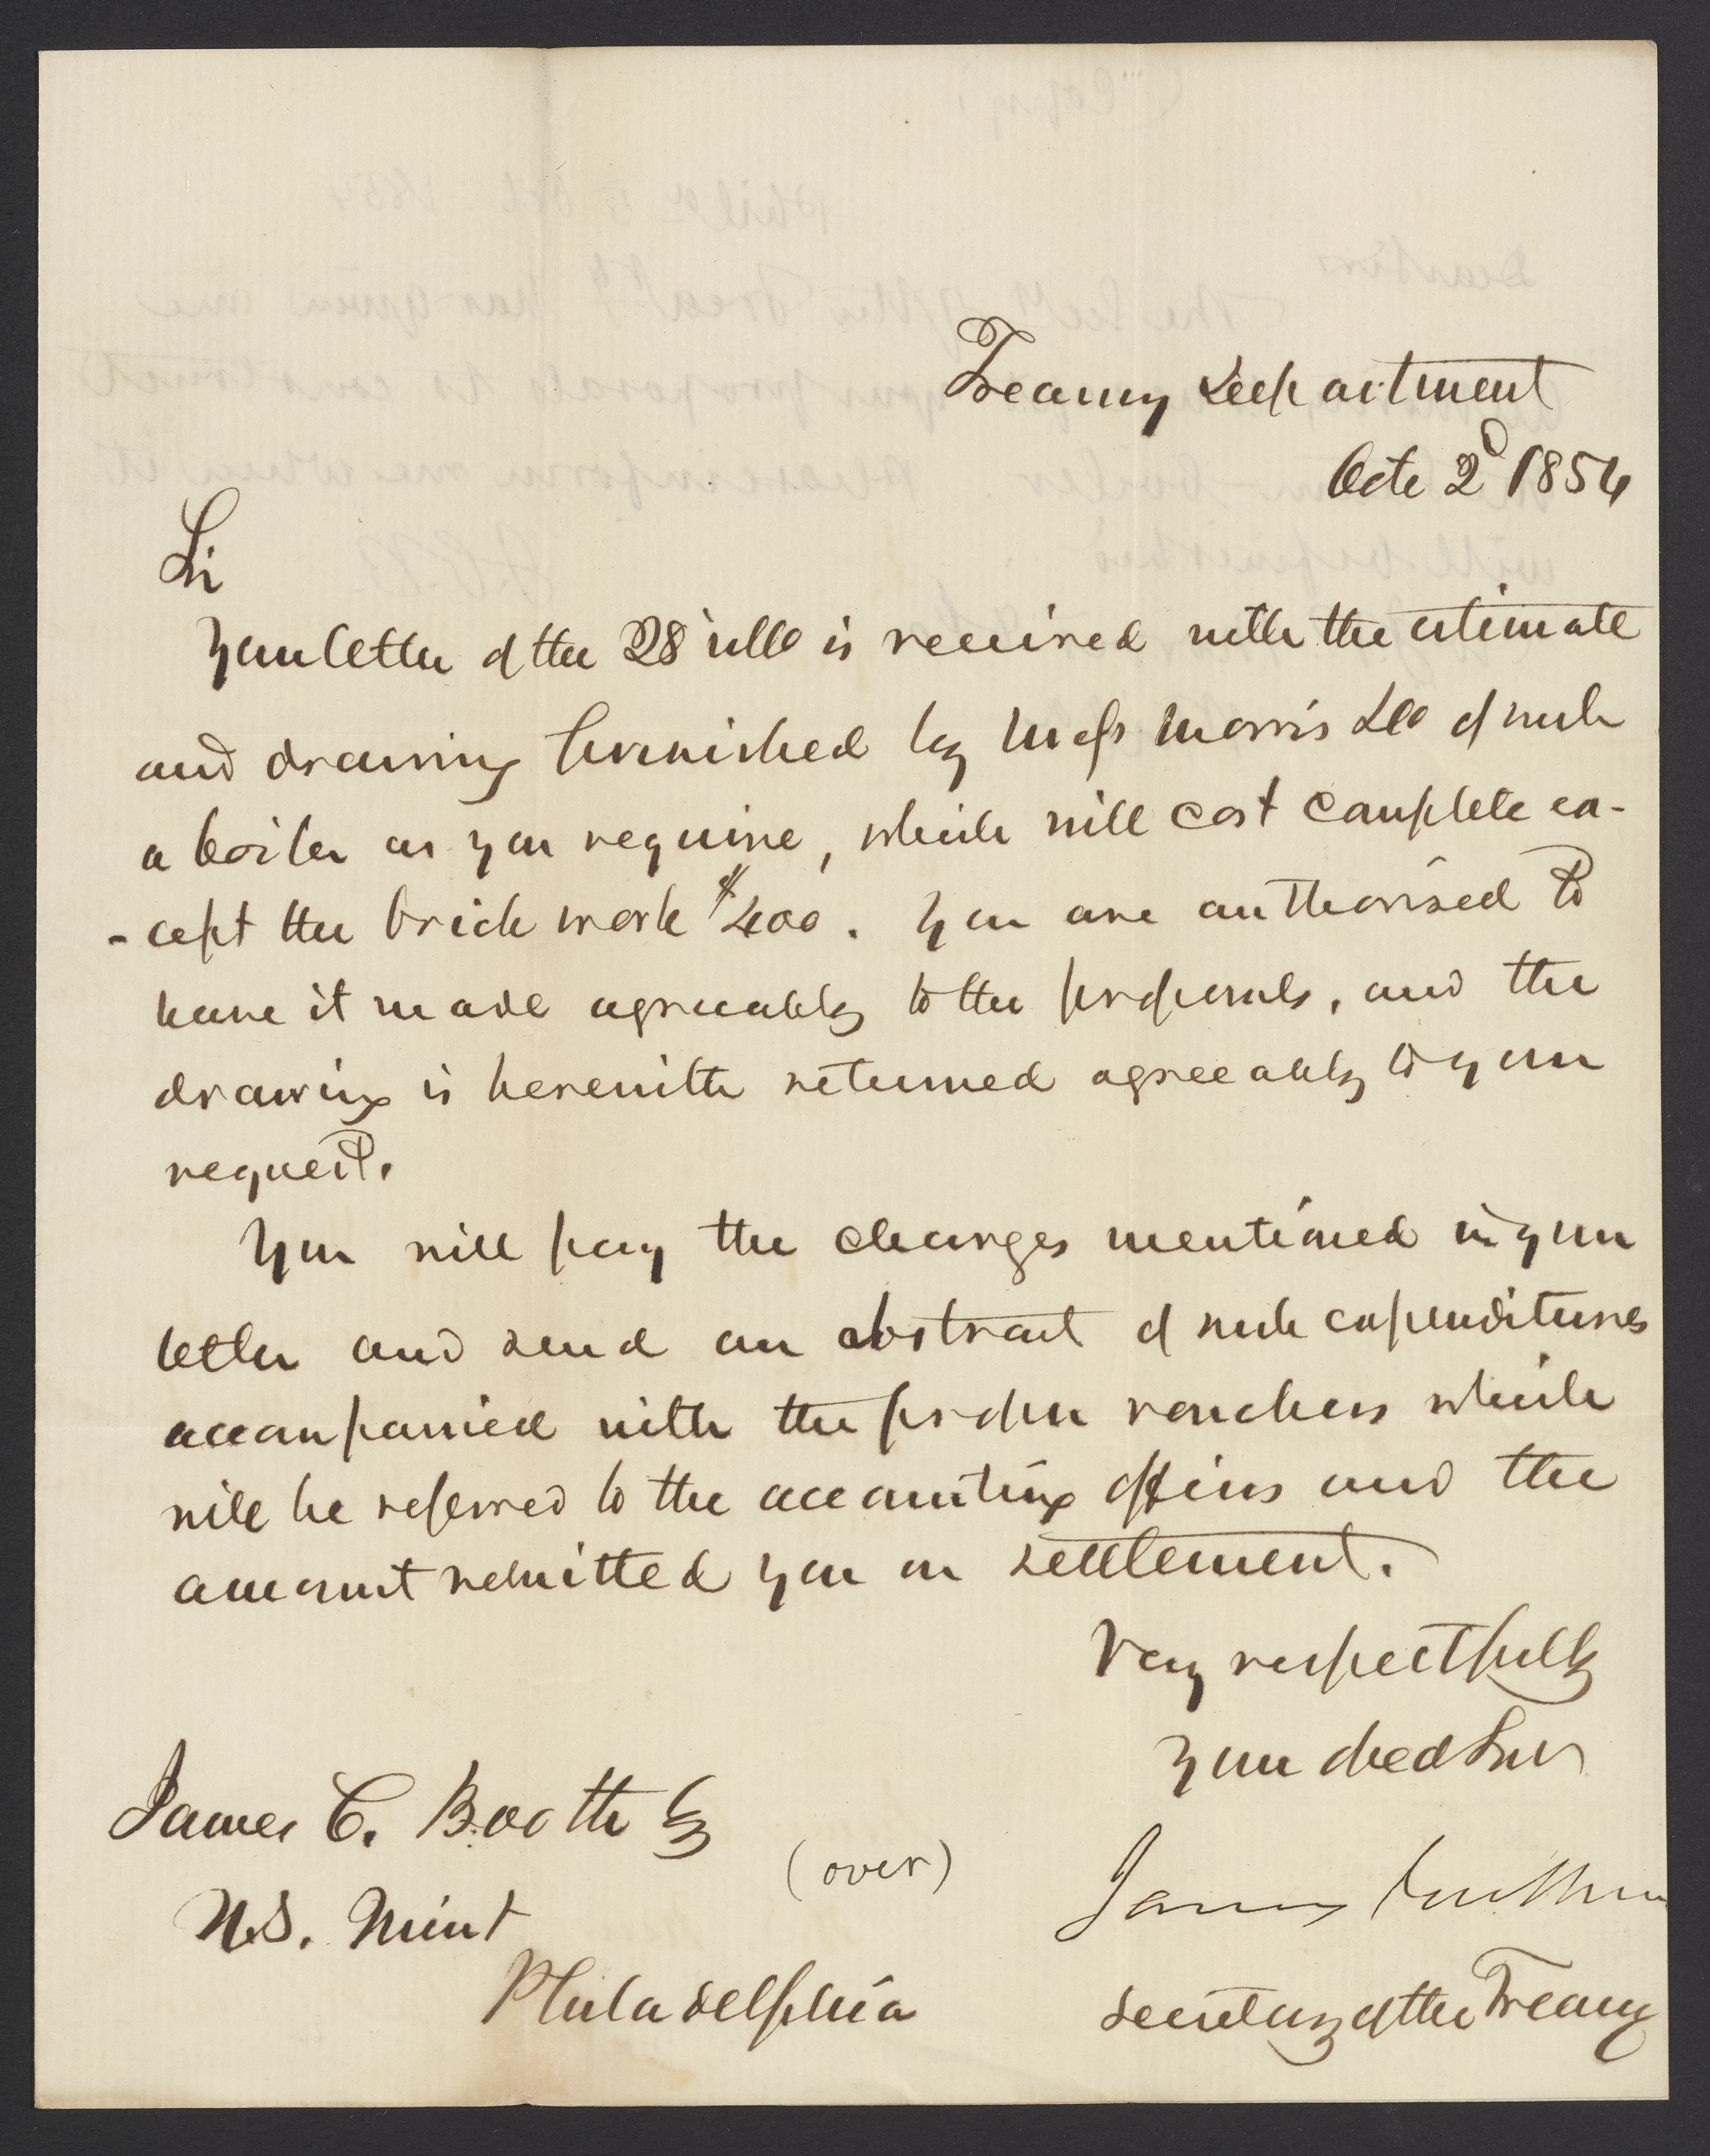 Treasury Department
Octr 2d 1854
Sir
Your letter of the 28 ulto is received with the estimate
and drawing furnished by Messrs Morris & Co of such
a boiler as you require, which will cost complete ex-
-cept the brick work $400. You are authorised to
have it made agreeably to the proposals, and the
drawing is herewith returned agreeably to your
request.
You will pay the charges mentioned in your
letter and send an abstract of such expenditures
accompanied with the proper vouchers which
will be referred to the accounting officers and the
amount remitted you on settlement.
Very respectfully
Your obed Serv
James C. Booth Esq
(over)
James Guthrie
U.S. Mint
Philadelphia
Secretary of the Treasury